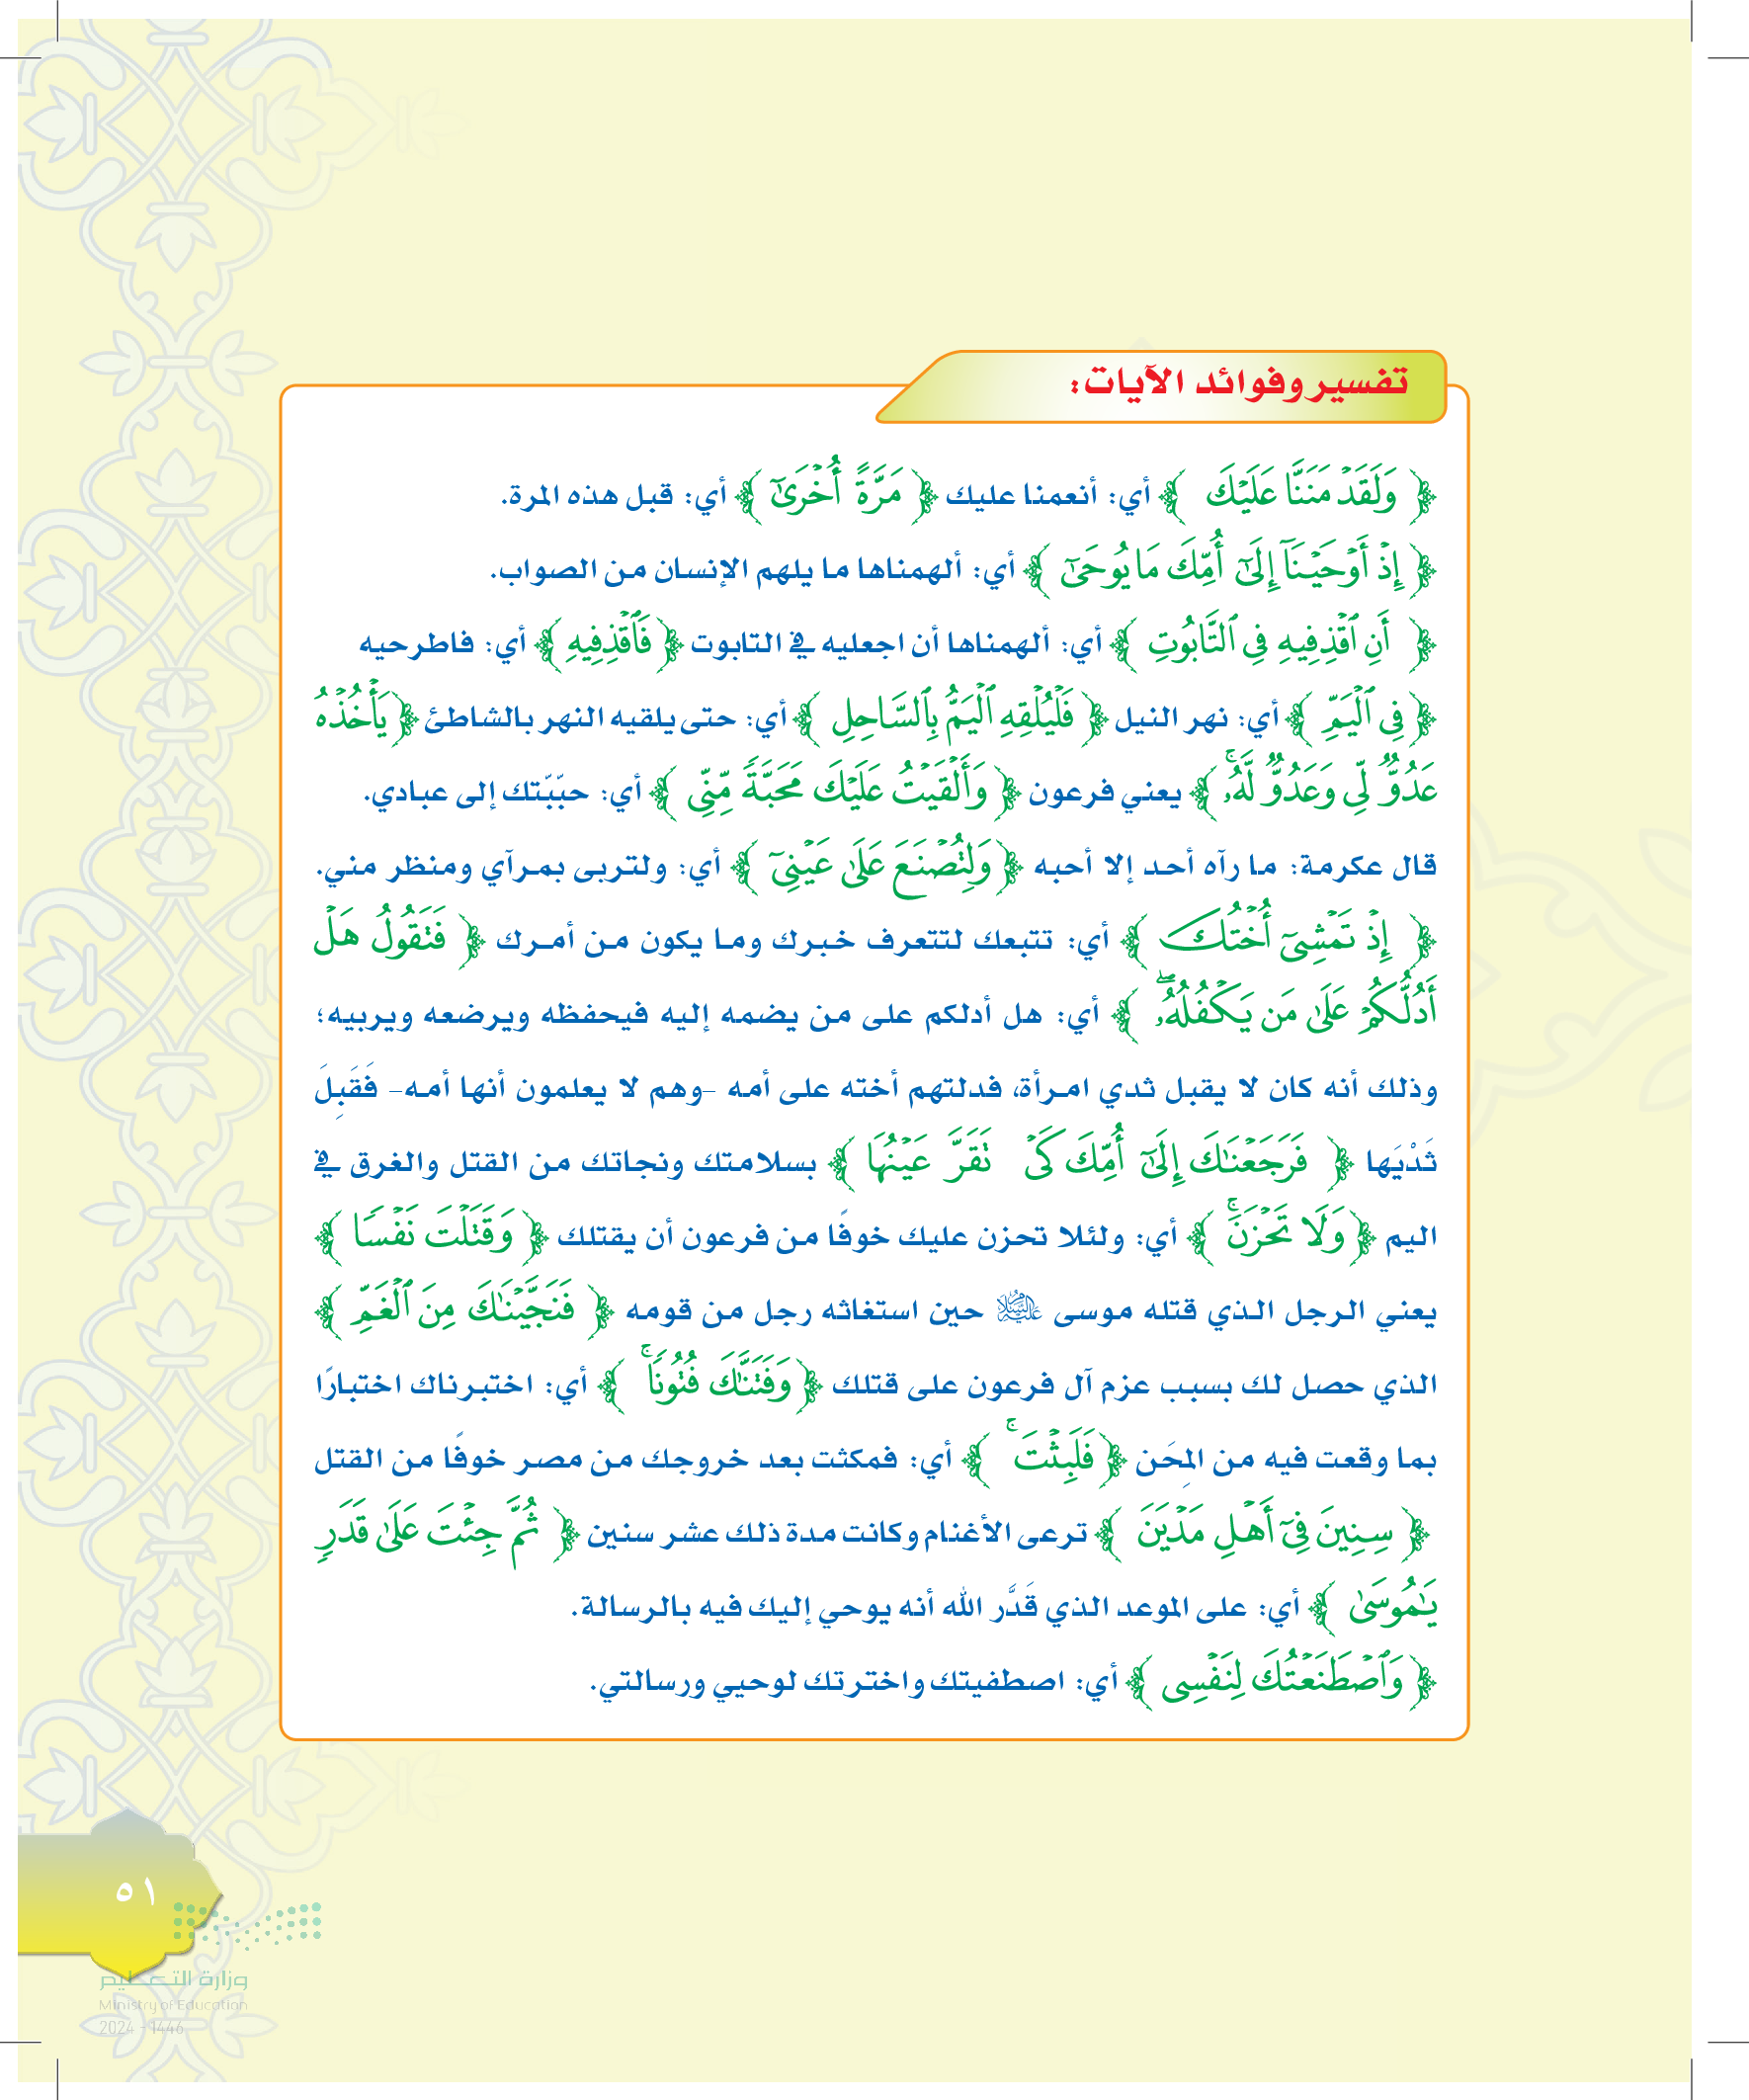 تفسير وفوائد الآيات:
﴿ وَلَقَدۡ مَنَنَّا عَلَيۡكَ ﴾ أي: أنعمنا عليك ﴿ مَرَّةً أُخۡرَىٰٓ ﴾ أي: قبل هذه المرة.
﴿ إِذۡ أَوۡحَيۡنَآ إِلَىٰٓ أُمِّكَ مَا يُوحَىٰٓ ﴾ أي: ألهمناها ما يلهم الإنسان من الصواب.
﴿ أَنِ ٱقۡذِفِيهِ فِي ٱلتَّابُوتِ ﴾ أي: ألهمناها أن اجعليه في التابوت ﴿ فَٱقۡذِفِيهِ ﴾ أي: فاطرحيه
﴿ فِي ٱلۡيَمِّ ﴾ أي: نهر النيل ﴿ فَلۡيُلۡقِهِ ٱلۡيَمُّ بِٱلسَّاحِلِ ﴾ أي: حتى يلقيه النهر بالشاطئ ﴿ يَأۡخُذۡهُ
عَدُوّٞ لِّي وَعَدُوّٞ لَّهُۥۚ ﴾ يعني فرعون ﴿ وَأَلۡقَيۡتُ عَلَيۡكَ مَحَبَّةٗ مِّنِّي ﴾ أي: حبّبّتك إلى عبادي.
قال عكرمة: ما رآه أحد إلا أحبه ﴿ وَلِتُصۡنَعَ عَلَىٰ عَيۡنِيٓ ﴾ أي: ولتربى بمرآي ومنظر مني.
﴿ إِذۡ تَمۡشِيٓ أُخۡتُكَ ﴾ أي: تتبعك لتتعرف خبرك وما يكون من أمرك ﴿ فَتَقُولُ هَلۡ
أَدُلُّكُمۡ عَلَىٰ مَن يَكۡفُلُهُۥۖ ﴾ أي: هل أدلكم على من يضمه إليه فيحفظه ويرضعه ويربيه؛
وذلك أنه كان لا يقبل ثدي امرأة، فدلتهم أخته على أمه –وهم لا يعلمون أنها أمه– فَقَبِلَ
ثَدْيَها ﴿ فَرَجَعۡنَٰكَ إِلَىٰٓ أُمِّكَ كَيۡ تَقَرَّ عَيۡنُهَا ﴾ بسلامتك ونجاتك من القتل والغرق في
اليم ﴿ وَلَا تَحۡزَنَۚ ﴾ أي: ولئلا تحزن عليك خوفًا من فرعون أن يقتلك ﴿ وَقَتَلۡتَ نَفۡسٗا ﴾
يعني الرجل الذي قتله موسى عليه السلام حين استغاثه رجل من قومه ﴿ فَنَجَّيۡنَٰكَ مِنَ ٱلۡغَمِّ ﴾
الذي حصل لك بسبب عزم آل فرعون على قتلك ﴿ وَفَتَنَّٰكَ فُتُونٗاۚ ﴾ أي: اختبرناك اختبارًا
بما وقعت فيه من المِحَن ﴿ فَلَبِثۡتَۚ ﴾ أي: فمكثت بعد خروجك من مصر خوفًا من القتل
﴿ سِنِينَ فِيٓ أَهۡلِ مَدۡيَنَ ﴾ ترعى الأغنام وكانت مدة ذلك عشر سنين ﴿ ثُمَّ جِئۡتَ عَلَىٰ قَدَرٖ
يَٰمُوسَىٰ ﴾ أي: على الموعد الذي قَدَّر الله أنه يوحي إليك فيه بالرسالة.
﴿ وَٱصۡطَنَعۡتُكَ لِنَفۡسِي ﴾ أي: اصطفيتك واخترتك لوحيي ورسالتي.
٥١
وزارة التعليم
Ministry of Education
2024 - 1446